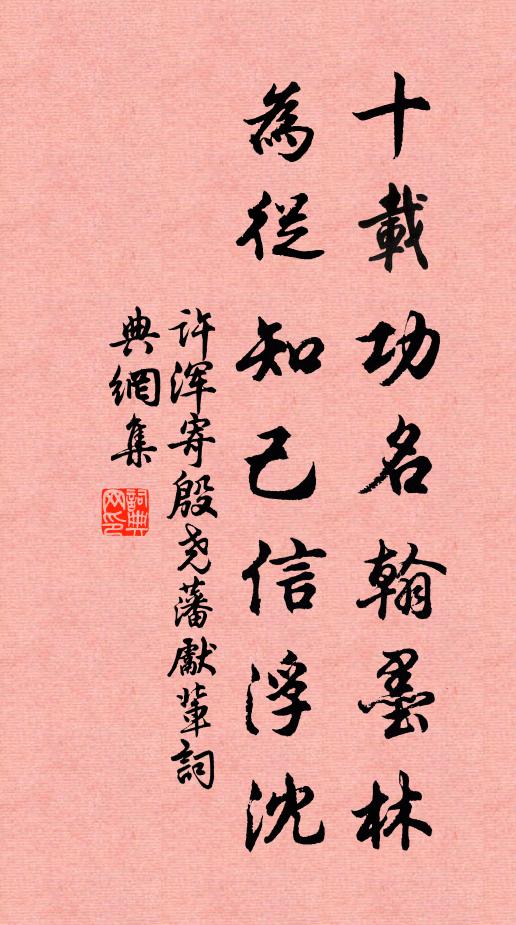 十載功名翰墨林
為從知己信浮沈
许浑寄殷尧藩獻輩詞
典網集
詞典
网印